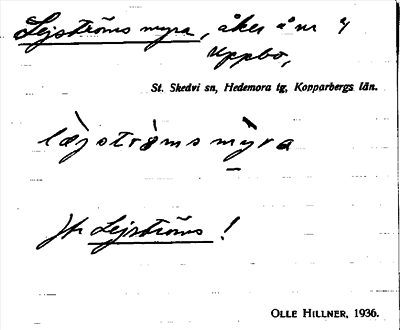 Lejströms myra, åker å nr 4
Uppbo,
St. Skedvi sn, Hedemora tg, Kopparbergs län.
læjstrò̀msmỳra
Jfr Lejströms!
OLLE HILLNER, 1936.